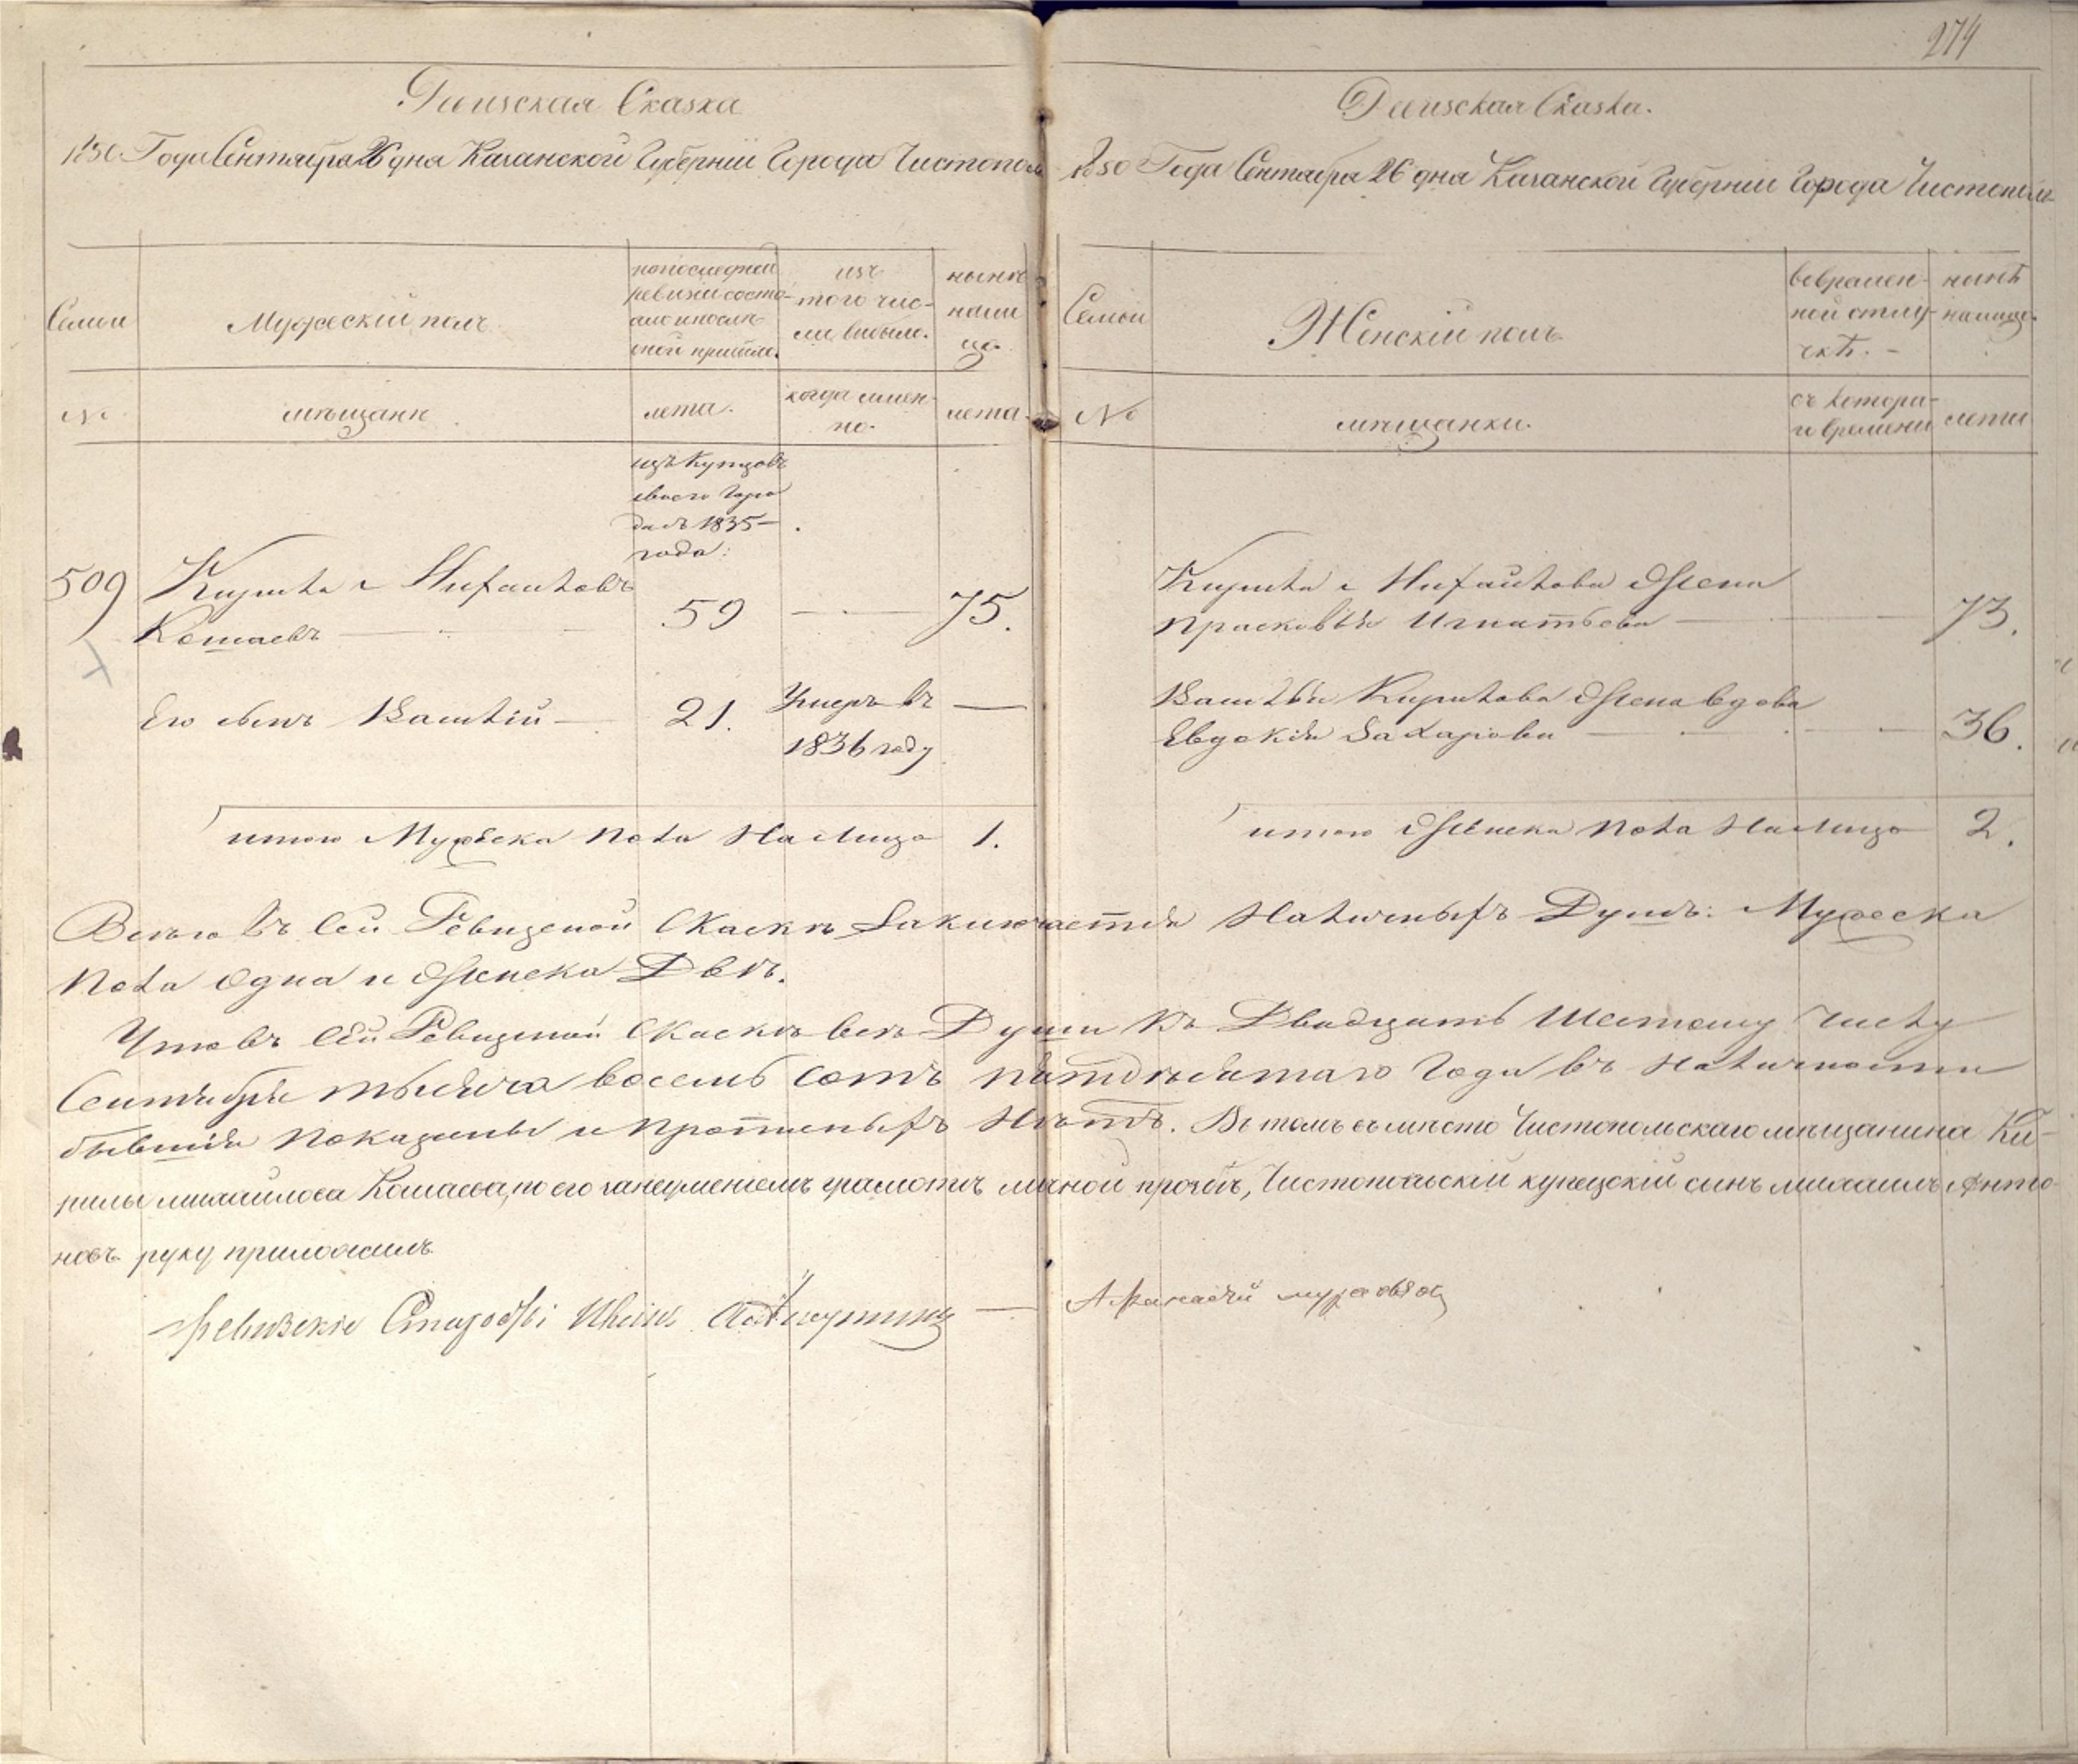 274
Ревизская Сказка
1850 Года Сентября 26 дна Казанской Губерніи Города Чистополь
Семьи
Мужескій полъ
по последней ревизіи состояло и после оной прибыло.
изъ того числа выбыло.
ныне на лицо
№
мѣщане
лета.
когда имен-но.
лета.
изъ Купцовъ
своего Горо
да съ 1835
года:
509 Кирила Михайловъ
Комаевъ 59 — 75.
Его сынъ Василій 21. Умеръ въ —
1836 году
итого Мужеска пола На лицо 1.
Ревизская Сказка.
1850 Года Сентабра 26 дна Казанской Губерніи Города Чистополь
Семьи
Женскій полъ
во времен-ной отлу-чкѣ. –
нынѣ на лицо.
№
мещанки.
съ котора-го времени
лета
Кирила Михайлова Жена
Прасковья Игнатьева — 73.
Василья Кирилова Жена вдова
Евдокія Захарова — 36.
итого Женска пола На лицо 2.
Всего въ сей Ревизской Сказкѣ Заключается Наличныхъ Душъ: Мужеска
пола одна и Женска Двѣ.
Что въ сей Ревизской Сказкѣ все Души къ Двадцать Шестому Числу
Сентября тысяча восемь сотъ пятдѣсятаго Года въ Наличности
бывшія показаны и прописныхъ Нѣтъ. Въ томъ въ мѣсто Чистопольскаго мѣщанина Ки-
рилы михайлова Комаева, по его неумениемъ грамоте личной прозбѣ, Чистопольскій купецскій сынъ михаилъ Анто-
новъ руку приложилъ
Ревизскіе Старосты